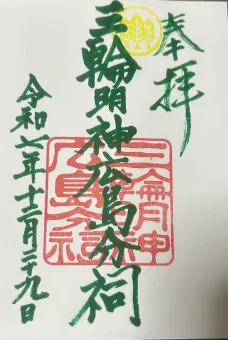 奉拝
三輪明神広島分祠
三輪明神
広島分祠
令和七年十二月二十九日